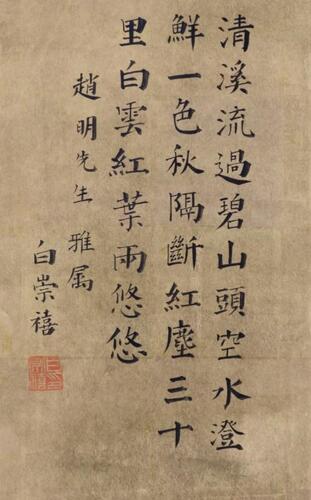 清溪流過碧山頭空水澄
鮮一色秋隔斷紅塵三十
里白雲紅葉兩悠悠
趙明先生雅属
白崇禧